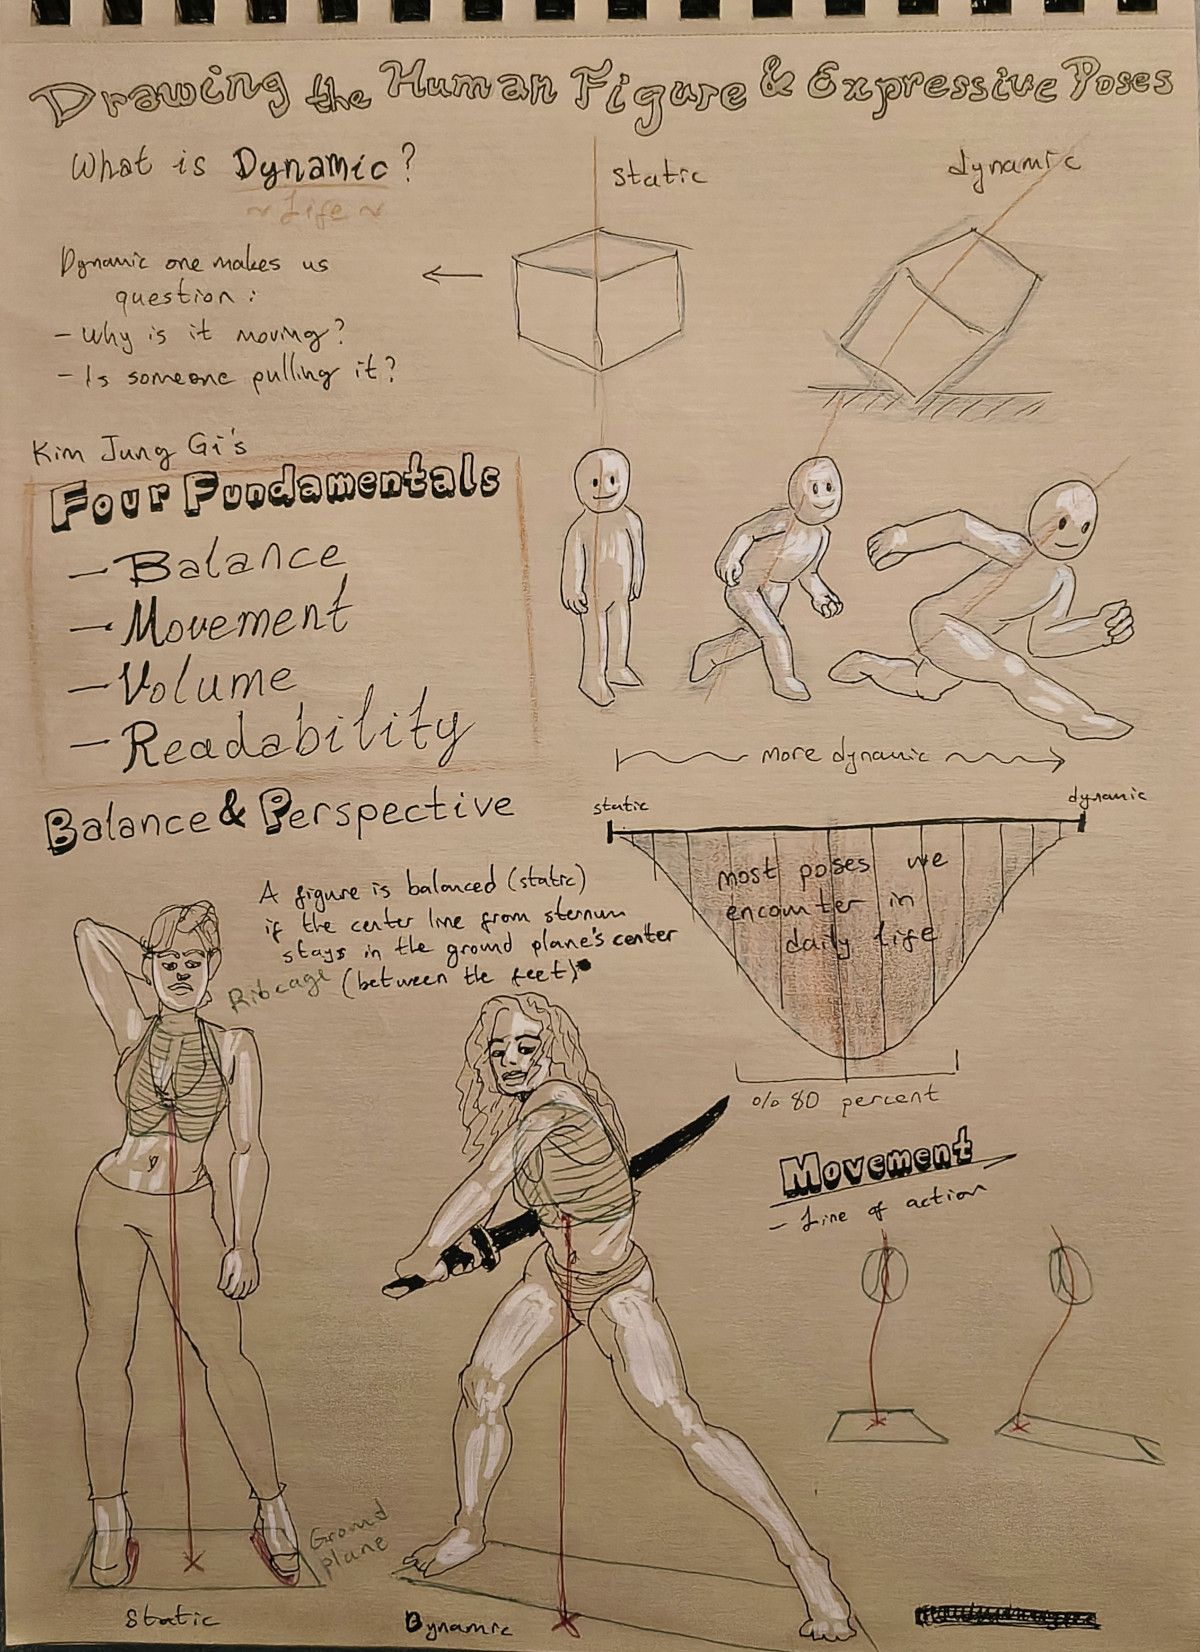 Drawing the Human Figure & Expressive Poses
What is Dynamic?
~ Life ~
static
dynamic
Dynamic one makes us
question:
- Why is it moving?
- Is someone pulling it?
Kim Jung Gi's
Four Fundamentals
- Balance
- Movement
- Volume
- Readability
more dynamic
Balance & Perspective
static
dynamic
most poses we
encounter in
daily life
% 80 percent
A figure is balanced (static)
if the center line from sternum
stays in the ground plane's center
(between the feet)
Ribcage
Movement
- Line of action
Ground
plane
Static
Dynamic